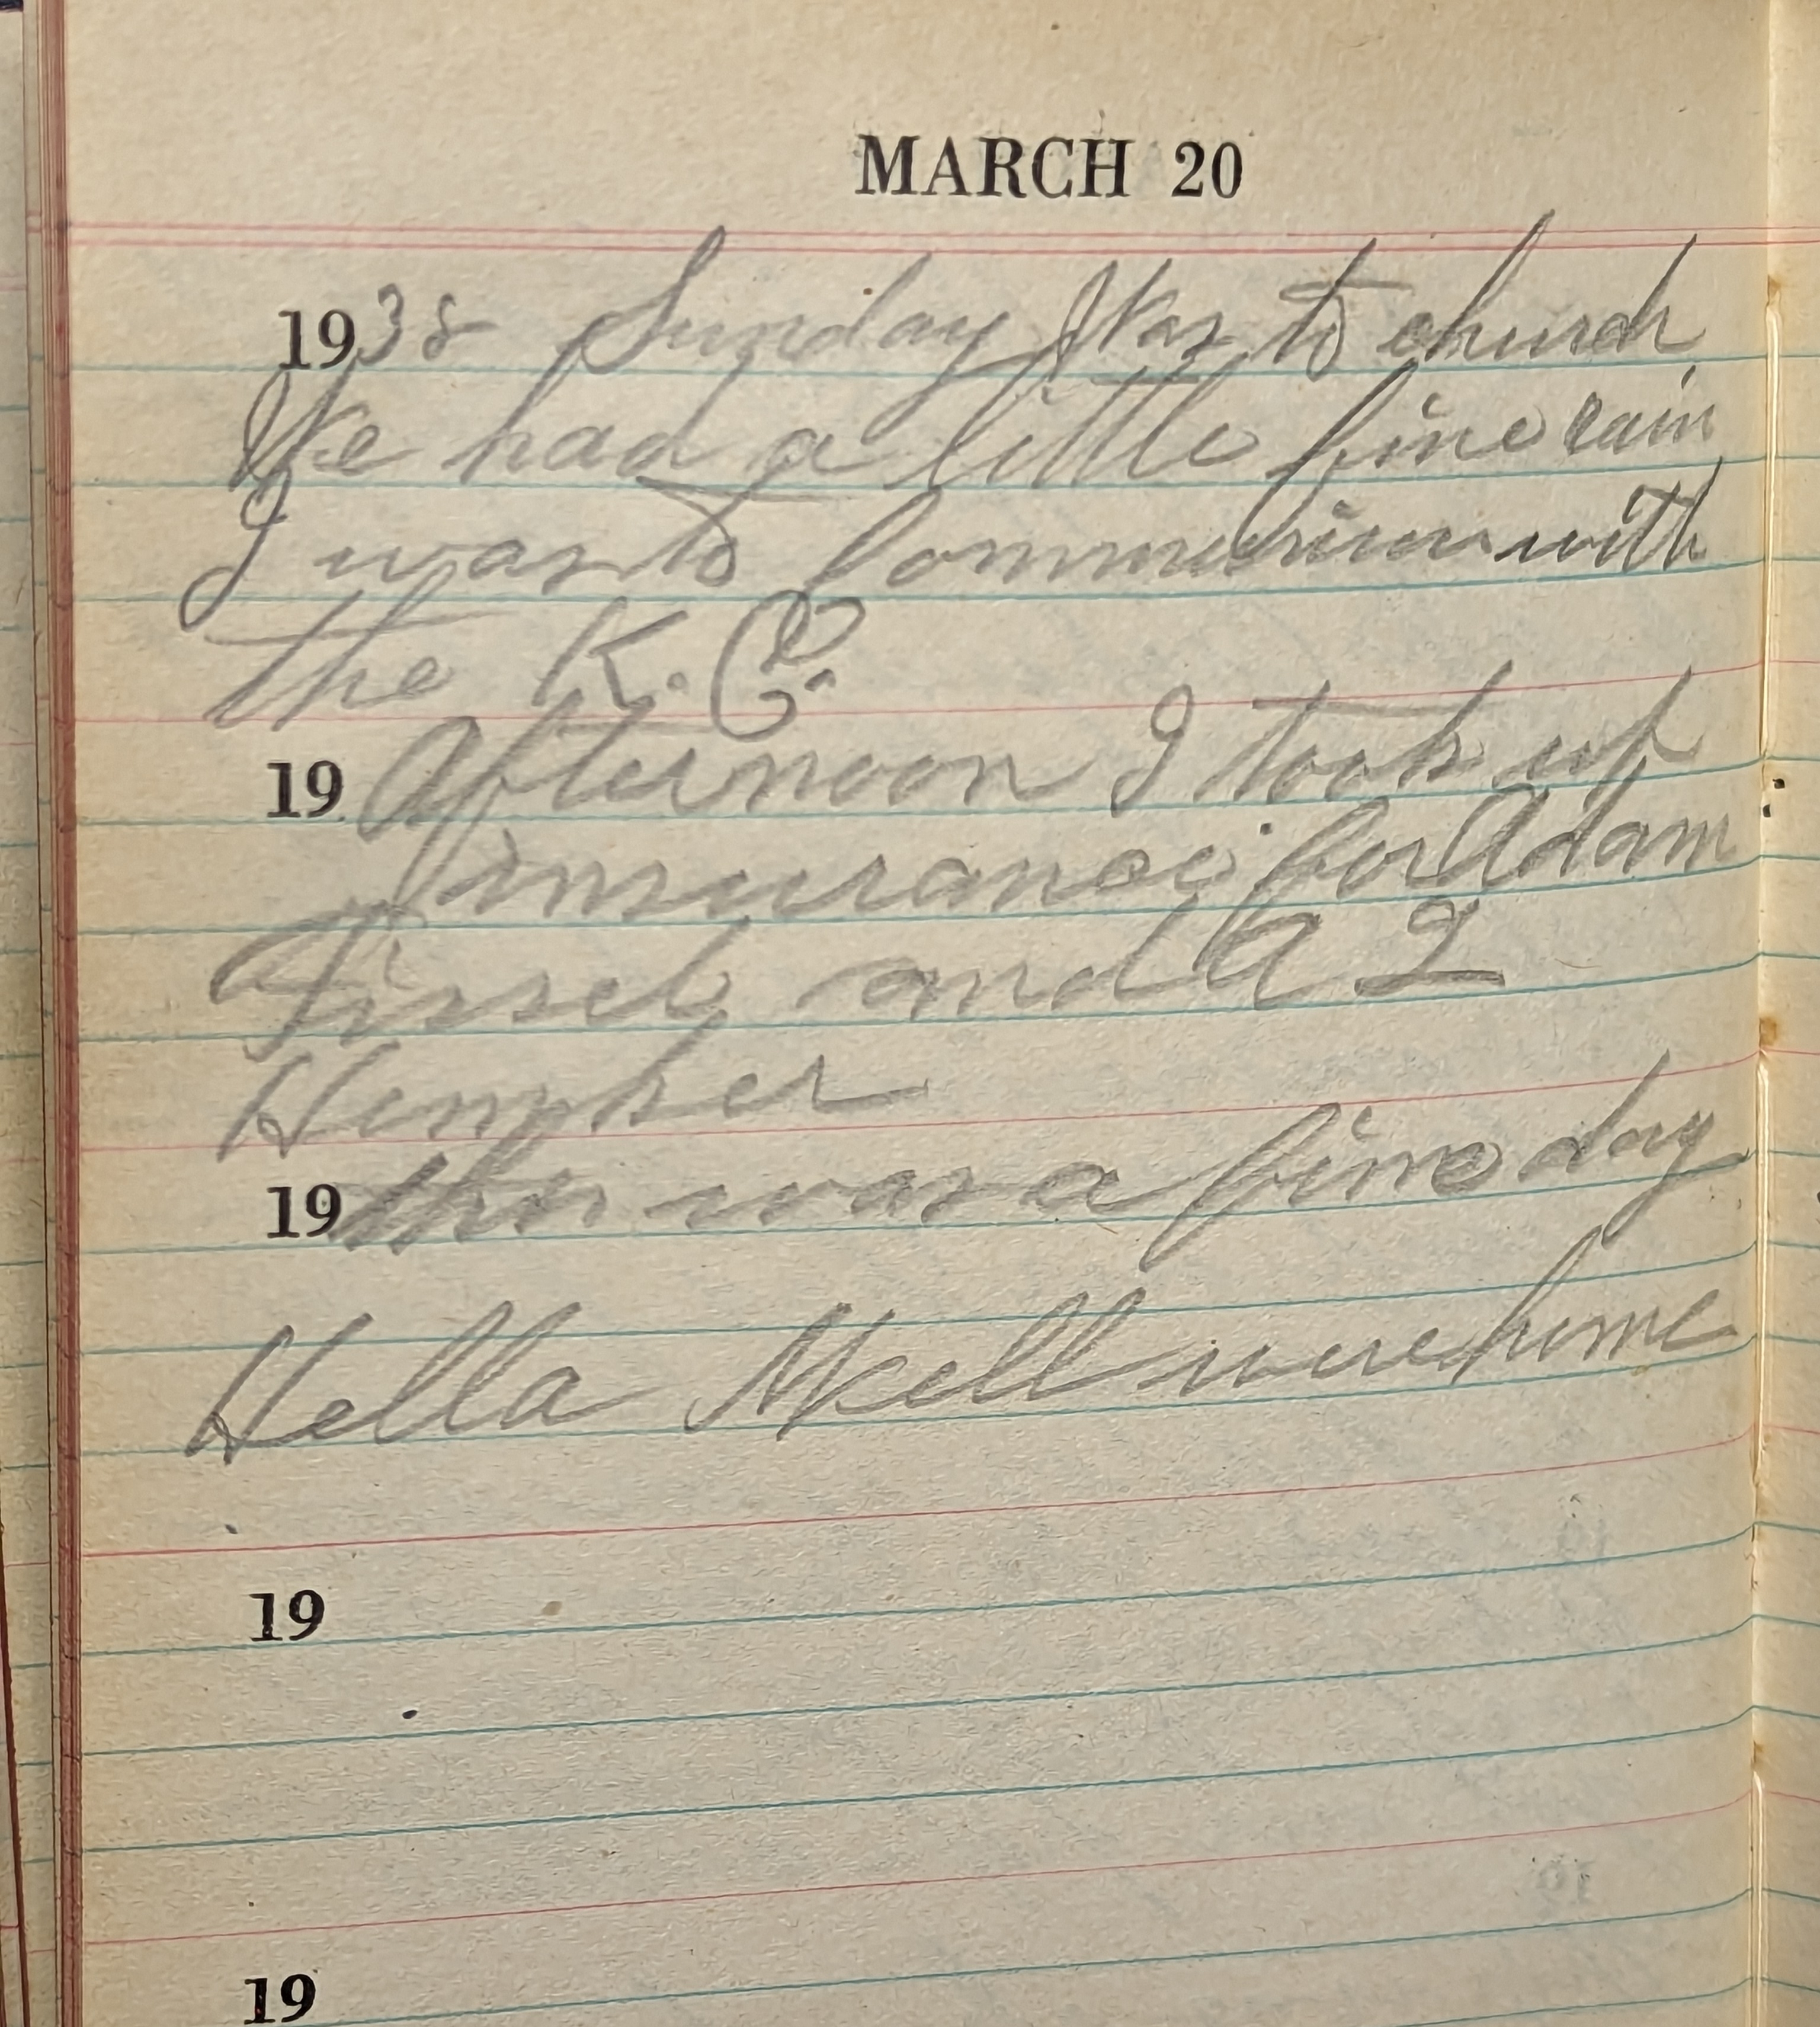 MARCH 20
1938 Sunday Was to church
We had a little fine rain
I was to Communion with
the K. C.
19 Afternoon I took up
insurance for Adam
and A 2
19 this was a fine day
Hella Nell were home
19
19